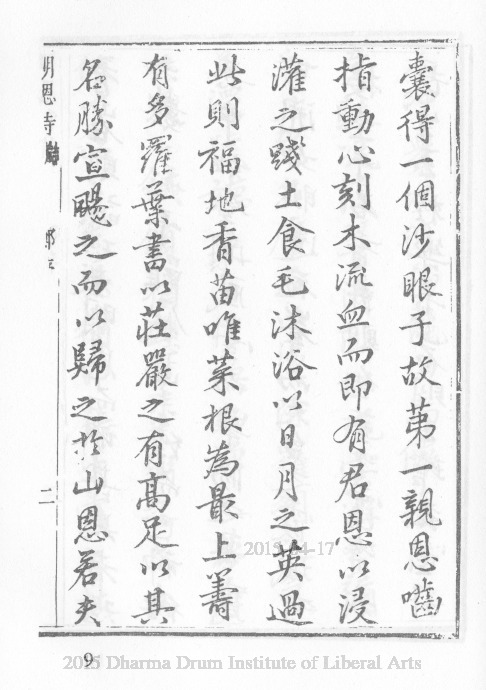 囊得一個沙眼子故苐一親恩嚙
指動心刻木流血而即有君恩以浸
灌之踐土食毛沐浴以日月之英過
此則福地香苗唯菜根為最上籌
有多羅葉書以莊嚴之有高足以其
名勝宣颺之而以歸之於山恩若夫
明恩寺
二
9
2013-04-17
2015 Dharma Drum Institute of Liberal Arts